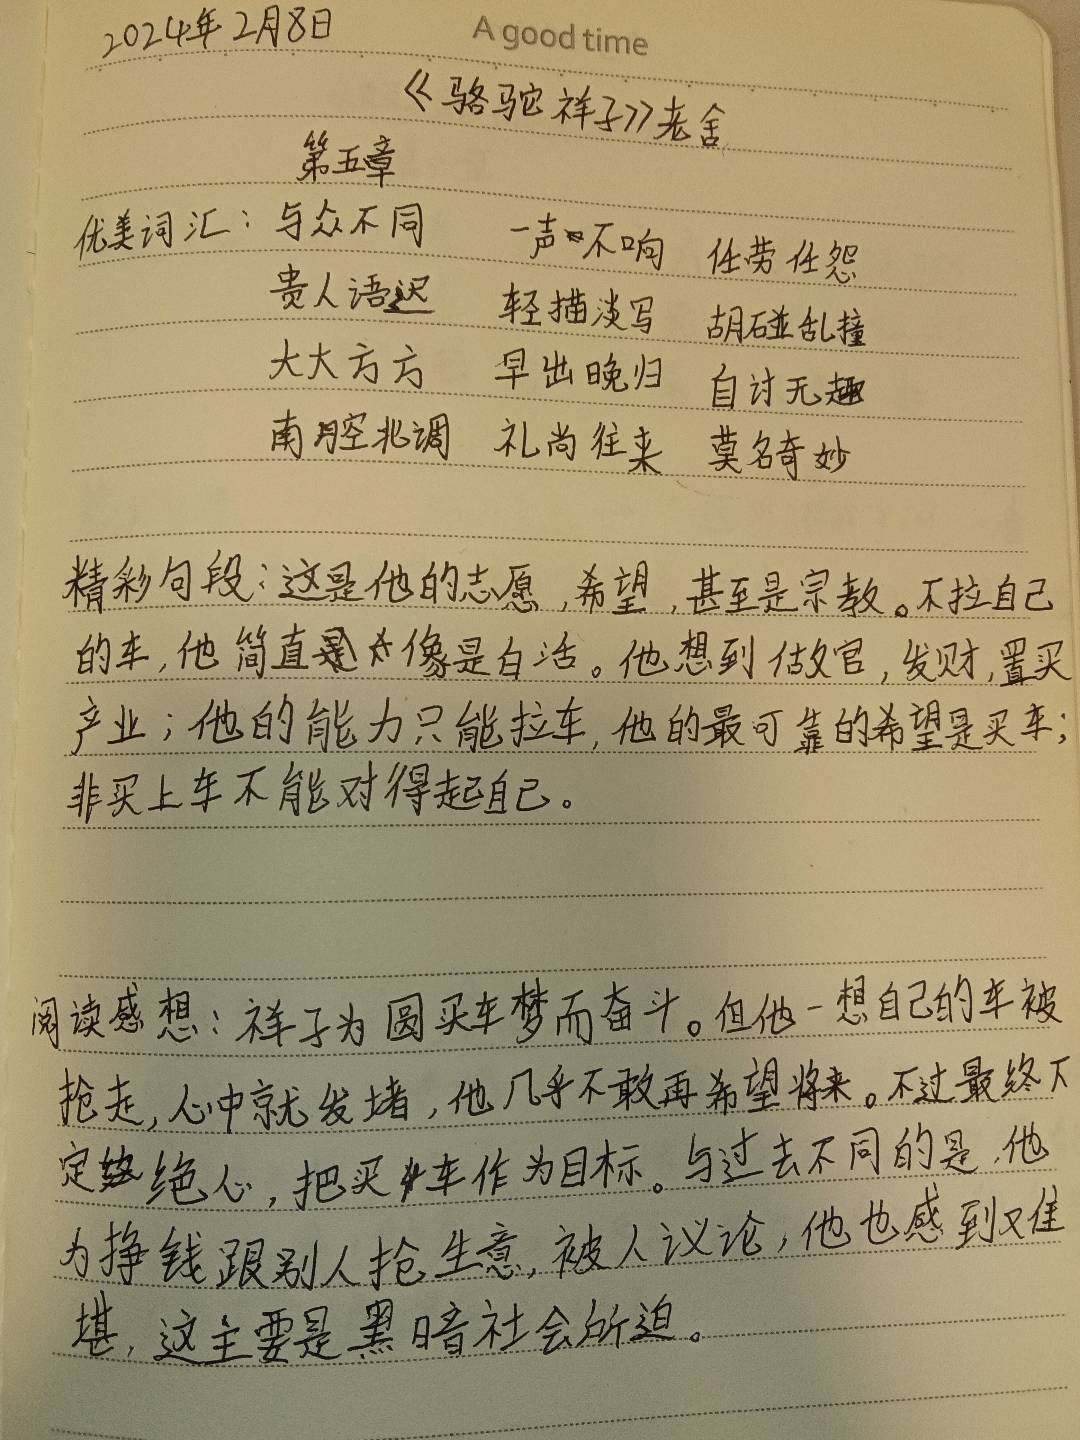 2024年2月8日
A good time
《骆驼祥子》老舍
第五章
优美词汇：与众不同 一声不响 任劳任怨
贵人语迟 轻描淡写 胡碰乱撞
大大方方 早出晚归 自讨无趣
南腔北调 礼尚往来 莫名奇妙
精彩句段：这是他的志愿，希望，甚至是宗教。不拉自己
的车，他简直像是白活。他想到做官，发财，置买
产业；他的能力只能拉车，他的最可靠的希望是买车；
非买上车不能对得起自己。
阅读感想：祥子为圆买车梦而奋斗。但他一想自己的车被
抢走，心中就发堵，他几乎不敢再希望将来。不过最终下
定绝心，把买车作为目标。与过去不同的是，他
为挣钱跟别人抢生意，被人议论，他也感到难
堪，这主要是黑暗社会所迫。